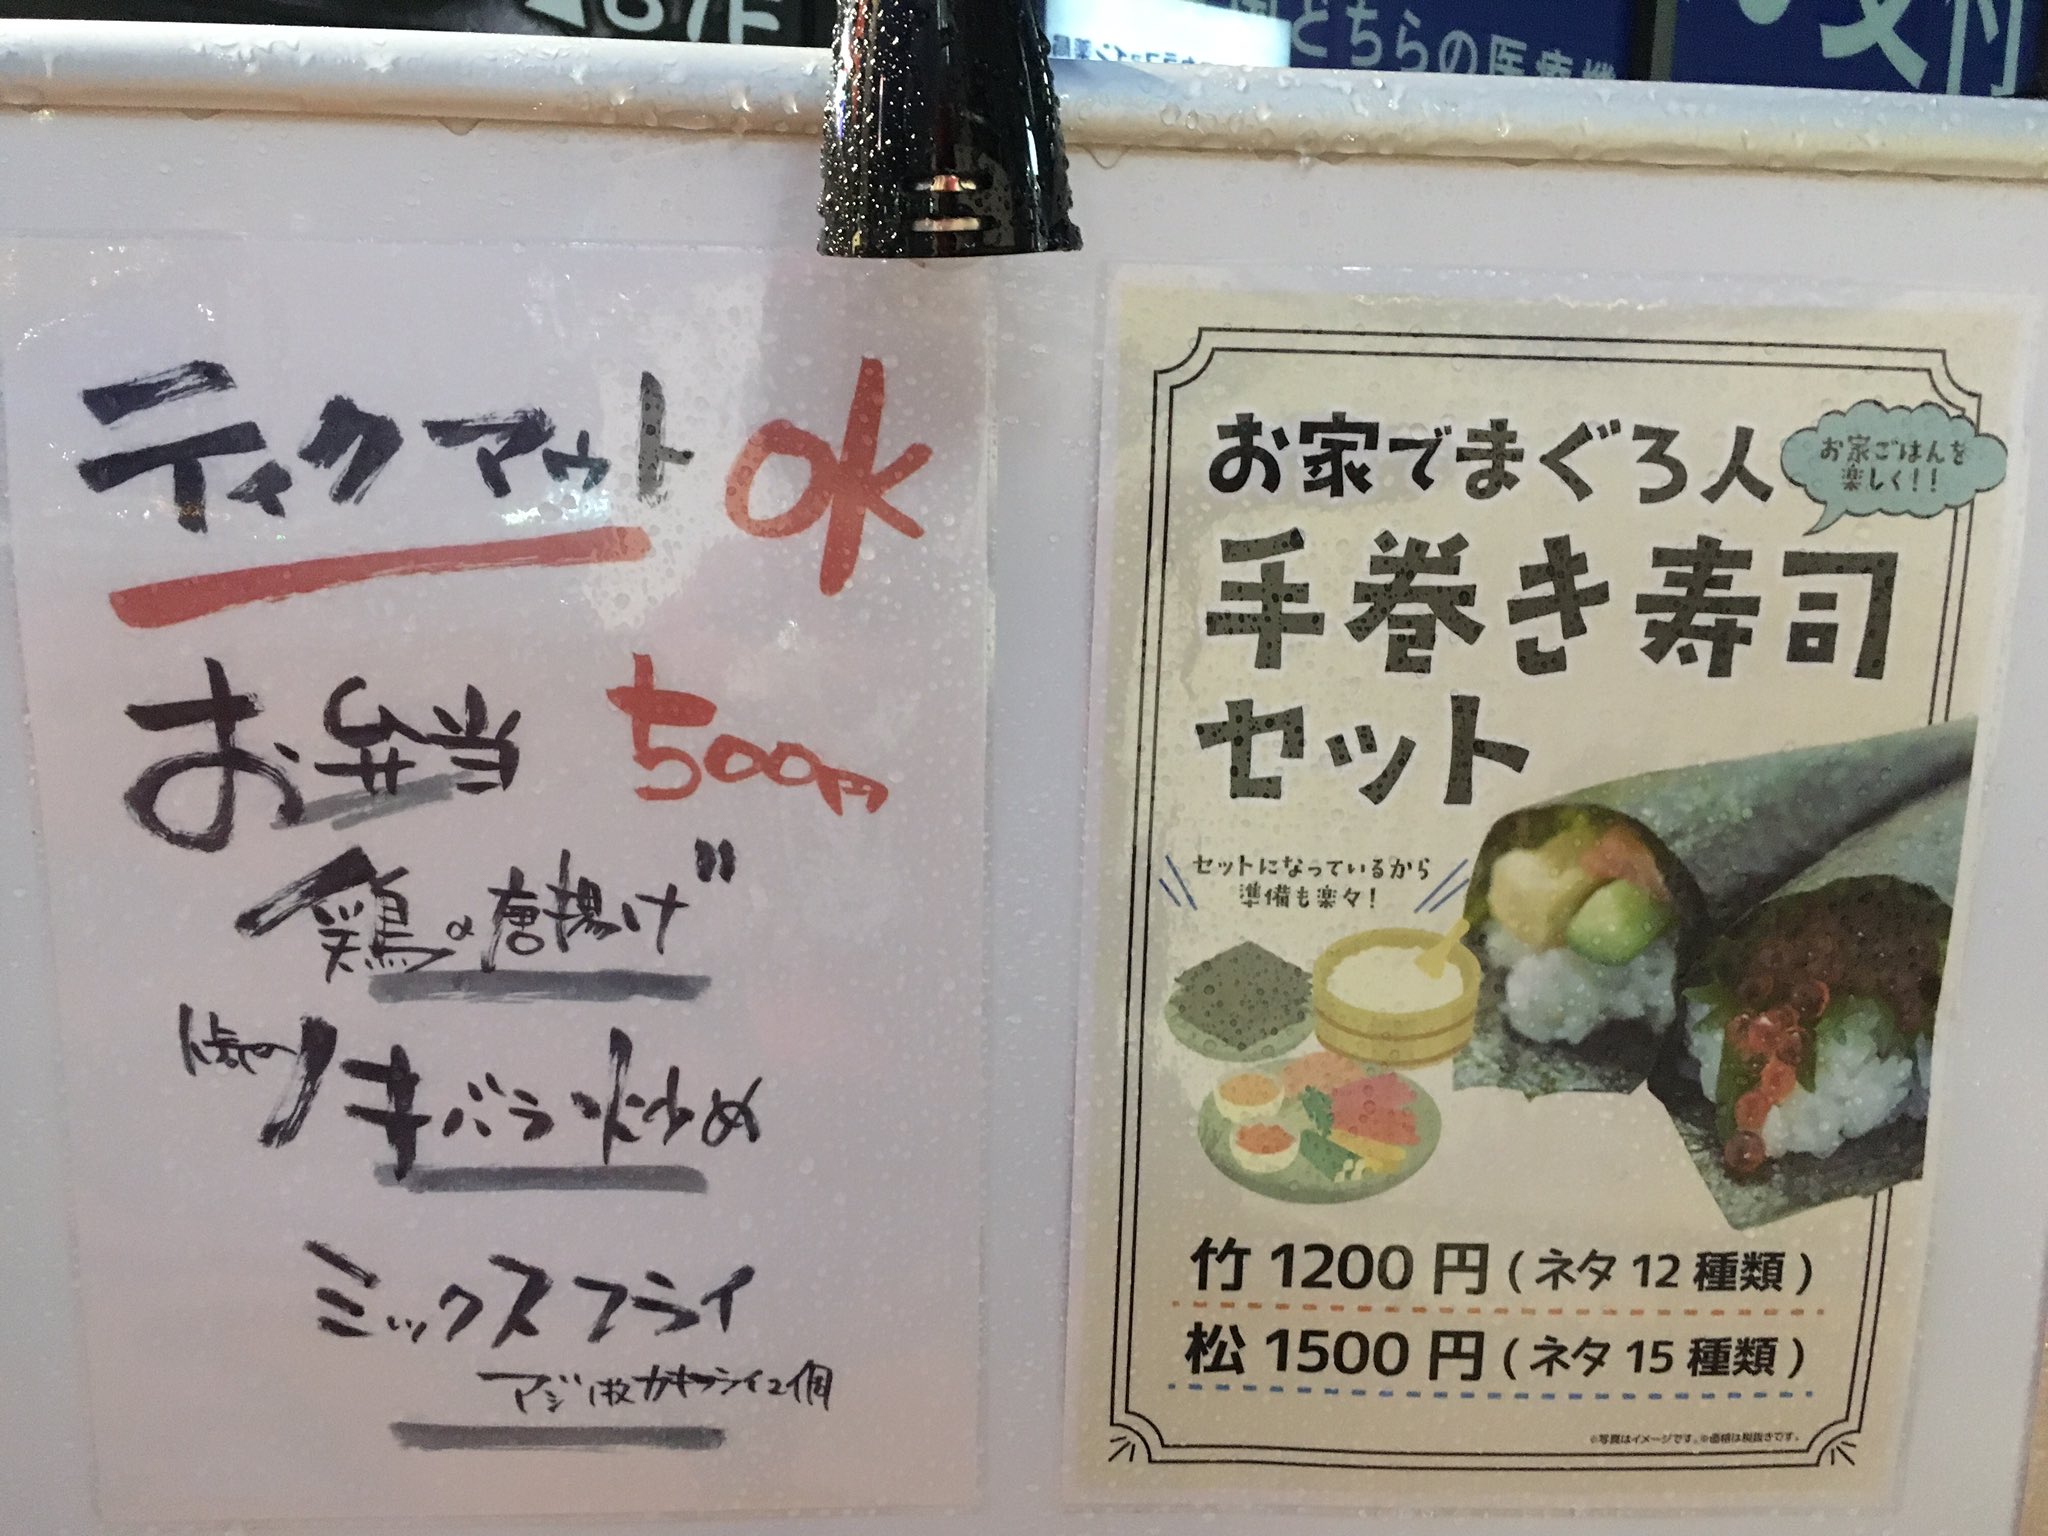 どちらの医療機
ティクアウト OK
お弁当 500円
鶏の唐揚げ
バラ炒め
ミックスフライ
アジ1枚カキフライ2個
お家でまぐろ人
お家ごはんを
楽しく!!
手巻き寿司
セット
セットになっているから
準備も楽々!
竹 1200 円 ( ネタ 12 種類 )
松 1500 円 ( ネタ 15 種類 )
※写真はイメージです。※価格は税抜きです。